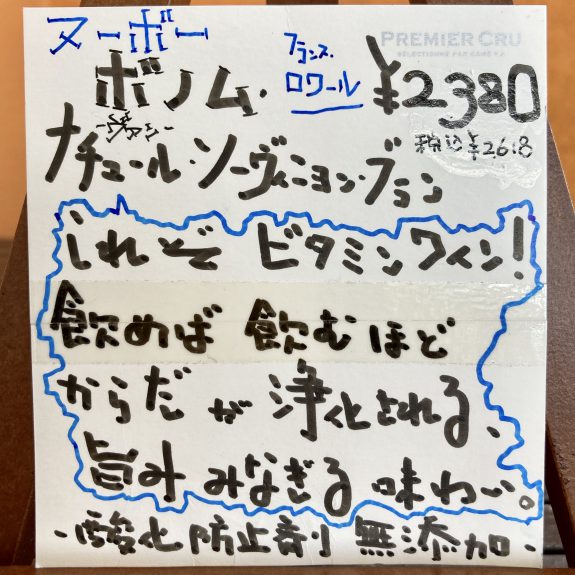 ヌーボー
フランス
ロワール
PREMIER CRU
SÉLECTIONNÉ PAR
ボノム・
¥2380
税込¥2618
ナチュール・ソーヴィニョン・ブラン
これぞ ビタミンワイン!
飲めば 飲むほど
からだが 浄化される、
旨み みなぎる 味わい。
・酸化防止剤 無添加・